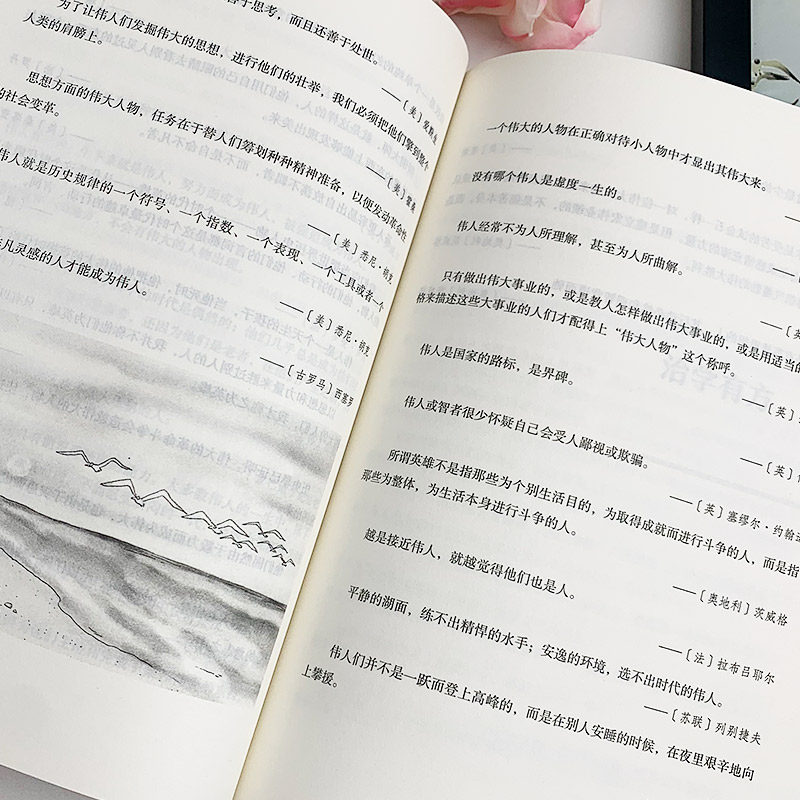 善于思考，而且还善于处世。
为了让伟人们发掘伟大的思想，进行他们的壮举，我们必须把他们擎到整个
人类的肩膀上。
——〔美〕霍桑
思想方面的伟大人物，任务在于替人们筹划种种精神准备，以便发动革命性
的社会变革。
——〔美〕悉尼·胡克
伟人就是历史规律的一个符号、一个指数、一个表现、一个工具或者一个
——〔美〕悉尼·胡克
凡灵感的人才能成为伟人。
——〔古罗马〕西塞罗
一个伟大的人物在正确对待小人物中才显出其伟大来。
没有哪个伟人是虚度一生的。
伟人经常不为人所理解，甚至为人所曲解。
只有做出伟大事业的，或是教人怎样做出伟大事业的，或是用适当的
格来描述这些大事业的人们才配得上“伟大人物”这个称呼。
——〔英〕
伟人是国家的路标，是界碑。
——〔英〕
伟人或智者很少怀疑自己会受人鄙视或欺骗。
——〔英〕塞缪尔·约翰逊
所谓英雄不是指那些为个别生活目的，为取得成就而进行斗争的人，而是指
那些为整体，为生活本身进行斗争的人。
——〔奥地利〕茨威格
越是接近伟人，就越觉得他们也是人。
——〔法〕拉布吕耶尔
平静的湖面，练不出精悍的水手；安逸的环境，选不出时代的伟人。
——〔苏联〕列别捷夫
伟人们并不是一跃而登上高峰的，而是在别人安睡的时候，在夜里艰辛地向
上攀援。